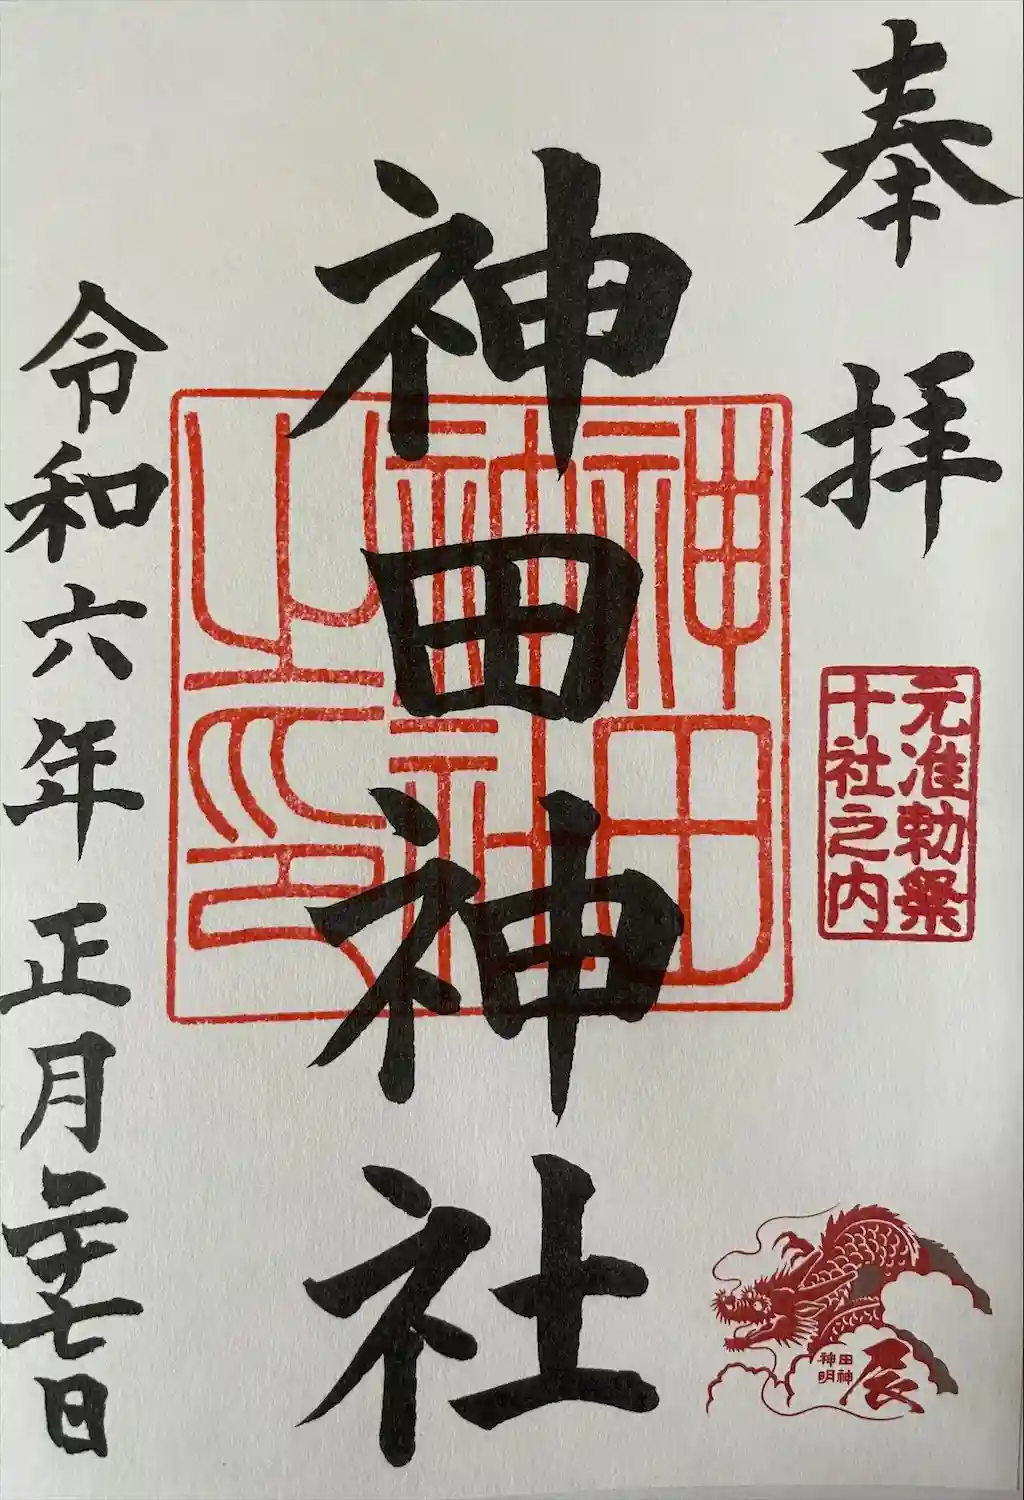 奉拝
元准勅祭
十社之内
神田神社
神田神社之印
田神
神明
辰
令和六年正月二十七日